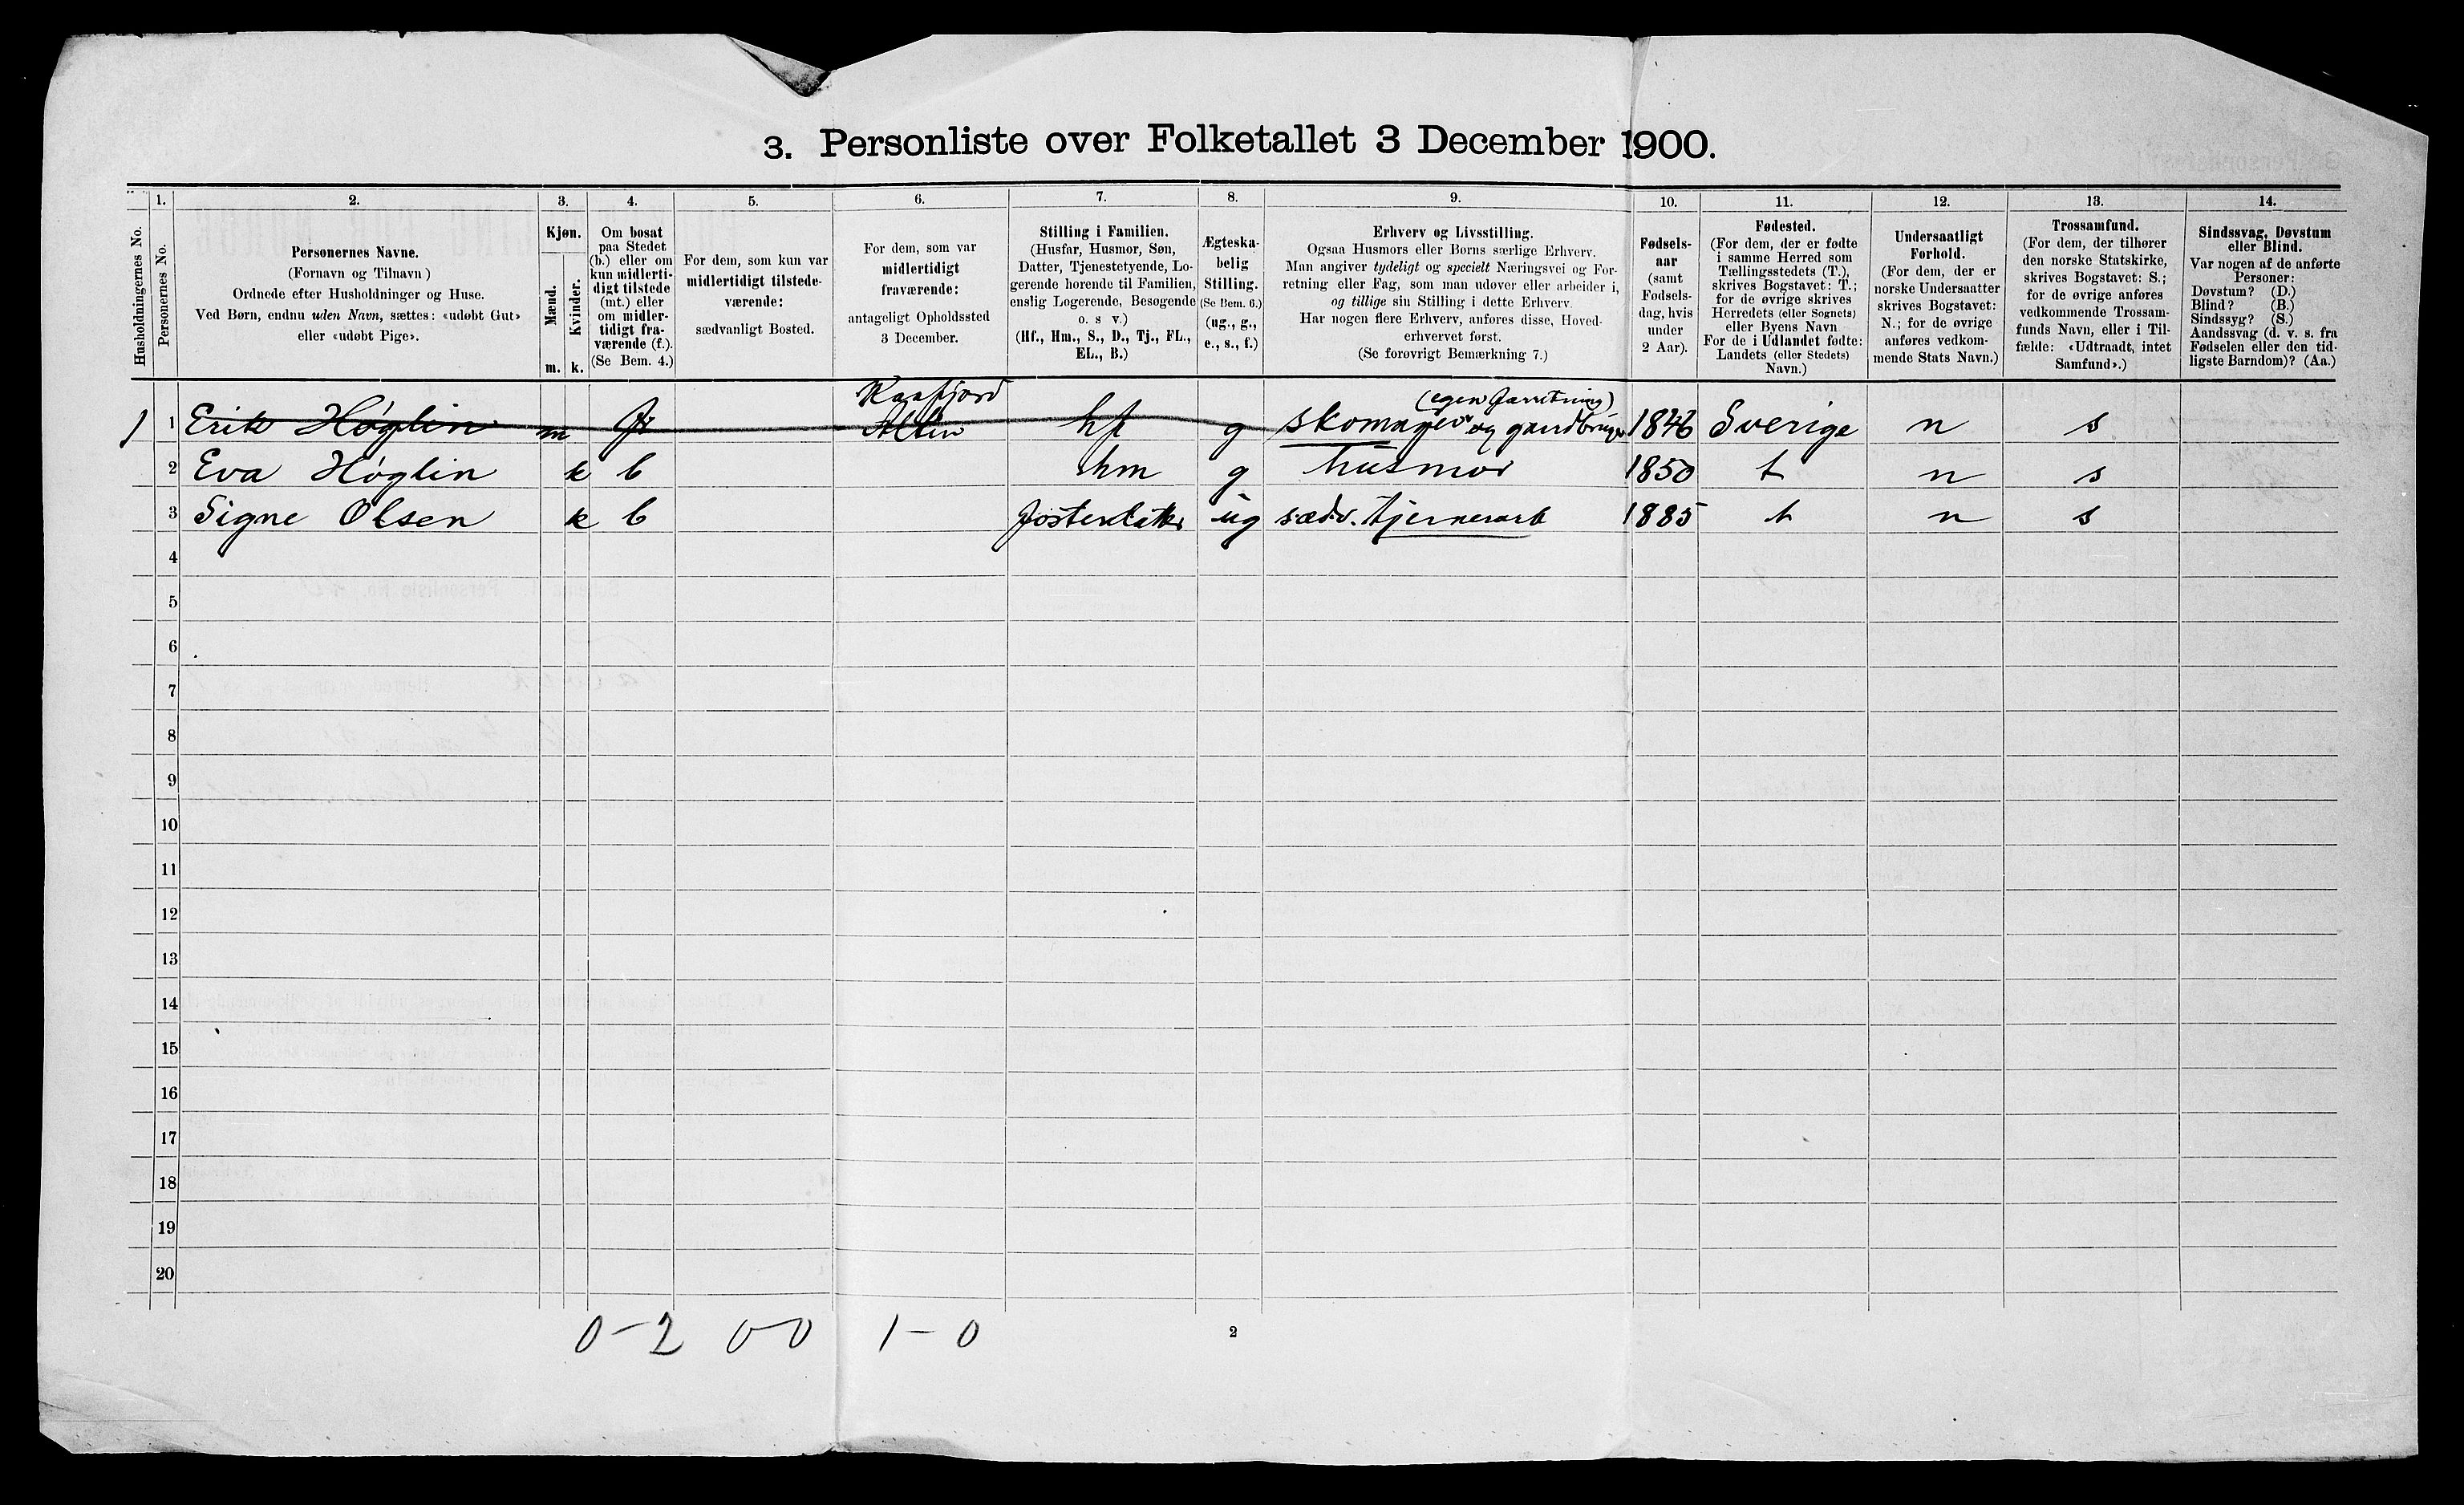 3. Personliste over Folketallet 3 December 1900.
1. 2. 3. 4. 5. 6. 7. 8. 9. 10. 11. 12. 13. 14.
Husholdningernes No.
Personernes No.
Personernes Navne.
(Fornavn og Tilnavn)
Ordnede efter Husholdninger og Huse.
Ved Børn, endnu uden Navn, sættes: «udøbt Gut»
eller «udøbt Pige».
Kjøn.
Mænd.
Kvinder.
m. k.
Om bosat
paa Stedet
(b.) eller om
kun midlerti-
digt tilstede
(mt.) eller
om midler-
tidigt fra-
værende (f.).
(Se Bem. 4.)
For dem, som kun var
midlertidigt tilstede-
værende:
sædvanligt Bosted.
For dem, som var
midlertidigt
fraværende:
antageligt Opholdssted
3 December.
Stilling i Familien.
(Husfar, Husmor, Søn,
Datter, Tjenestetyende, Lo-
gerende hørende til Familien,
enslig Logerende, Besøgende
o. s v.)
(Hf., Hm., S., D., Tj., FL.,
EL., B.)
Ægteska-
belig
Stilling.
(Se Bem. 6.)
(ug., g.,
e., s., f.)
Erhverv og Livsstilling.
Ogsaa Husmors eller Børns særlige Erhverv.
Man angiver tydeligt og specielt Næringsvei og For-
retning eller Fag, som man udøver eller arbeider i,
og tillige sin Stilling i dette Erhverv.
Har nogen flere Erhverv, anføres disse, Hoved-
erhvervet først.
(Se forøvrigt Bemærkning 7.)
Fødsels-
aar
(samt
Fødsels-
dag, hvis
under
2 Aar).
Fødested.
(For dem, der er fødte
i samme Herred som
Tællingsstedets (T.),
skrives Bogstavet: T.;
for de øvrige skrives
Herredets (eller Sognets)
eller Byens Navn
For de i Udlandet fødte:
Landets (eller Stedets)
Navn.)
Undersaatligt
Forhold.
(For dem, der er
norske Undersaatter
skrives Bogstavet:
N.; for de øvrige
anføres vedkom-
mende Stats Navn.)
Trossamfund.
(For dem, der tilhører
den norske Statskirke,
skrives Bogstavet: S.;
for de øvrige anføres
vedkommende Trossam-
funds Navn, eller i Til-
fælde: «Udtraadt, intet
Samfund».)
Sindssvag, Døvstum
eller Blind.
Var nogen af de anførte
Personer:
Døvstum? (D.)
Blind? (B.)
Sindssyg? (S.)
Aandssvag (d. v. s. fra
Fødselen eller den tid-
ligste Barndom)? (Aa.)
Kaafjord (egen forretning)
1 1 Erik Høglin m Alten hf g skomager og gaardbruger 1846 Sverige n s
2 Eva Høglin k b hm g husmor 1850 t n s
3 Signe Olsen k b fosterdatter ug sædv. tjenerarb 1885 t n s
4
5
6
7
8
9
10
11
12
13
14
15
16
17
18
19
20
0-2 0-0 1-0 2